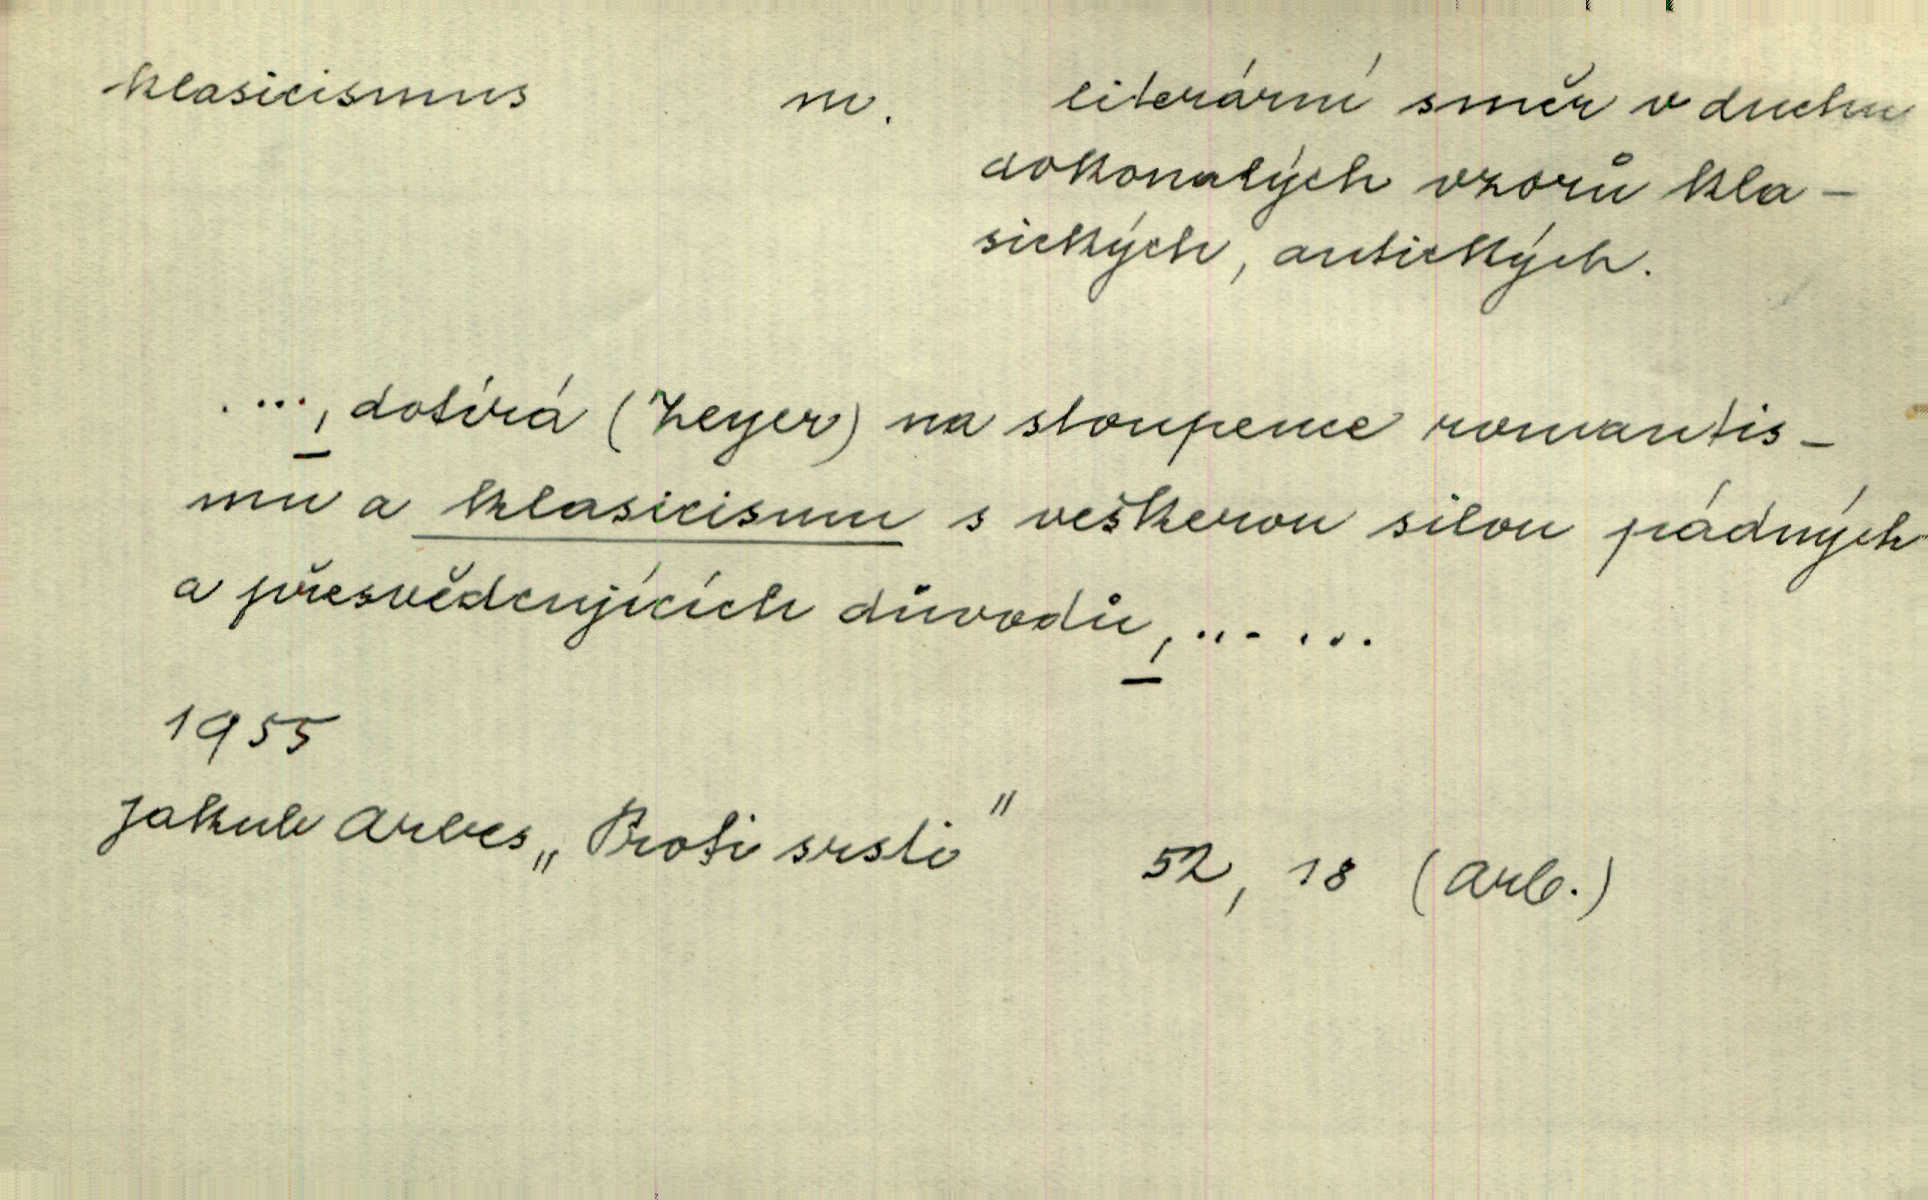 klasicismus m. literární směr v duchu
dokonalých vzorů kla-
sických, antických.
...., dotírá (Zeyer) na stoupence romantis-
mu a klasicismu s veškerou silou pádných
a přesvědčujících důvodů, ... ...
1955
Jakub Arbes „Proti srsti" 52, 18 (Arb.)